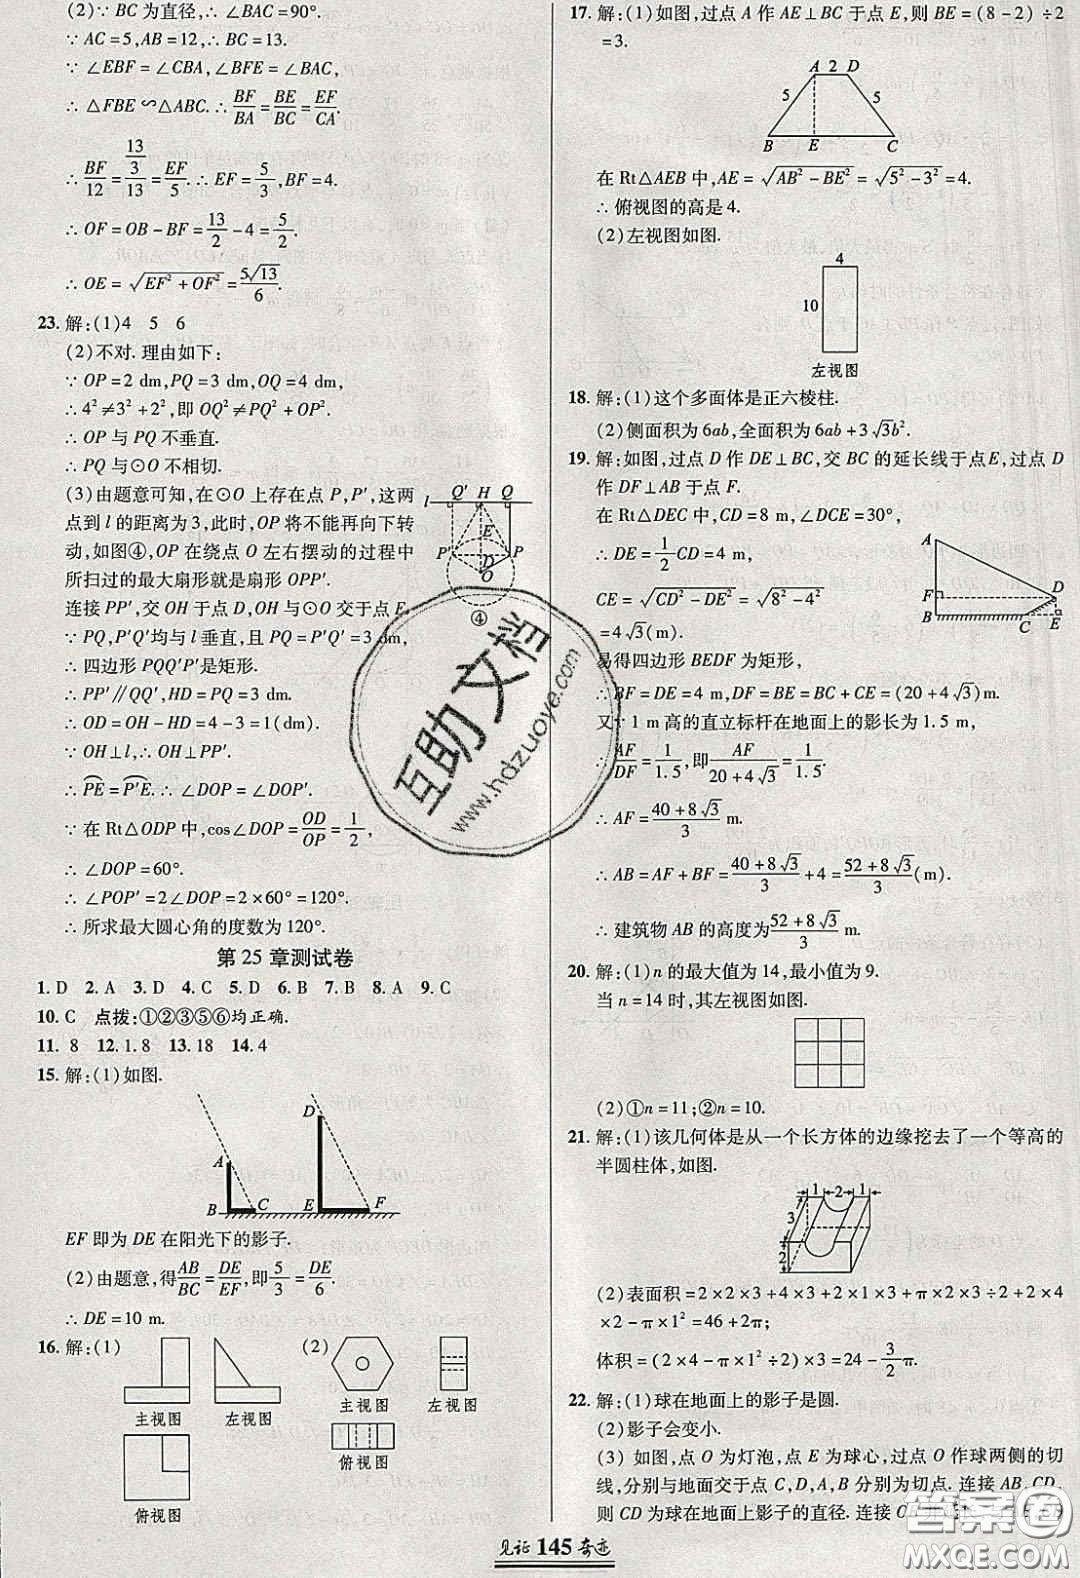 (2)∵ BC 为直径,∴ ∠BAC=90°.
∵ AC=5,AB=12,∴ BC=13.
∵ ∠EBF=∠CBA,∠BFE=∠BAC,
∴ △FBE∽△ABC.∴ BF/BA=BE/BC=EF/CA.
∴ BF/12=(13/3)/13=EF/5.∴ EF=5/3,BF=4.
∴ OF=OB-BF=13/2-4=5/2.
∴ OE=√(EF²+OF²)=5√13/6.
23. 解:(1)4 5 6
(2)不对. 理由如下:
∵ OP=2 dm,PQ=3 dm,OQ=4 dm,
∴ 4²≠3²+2²,即 OQ²≠PQ²+OP².
∴ OP 与 PQ 不垂直.
∴ PQ 与⊙O 不相切.
(3)由题意可知,在⊙O 上存在点 P,P′,这两
点到 l 的距离为 3,此时,OP 将不能再向下转
动,如图④,OP 在绕点 O 左右摆动的过程中
所扫过的最大扇形就是扇形 OPP′.
连接 PP′,交 OH 于点 D,OH 与⊙O 交于点 E.
∵ PQ,P′Q′均与 l 垂直,且 PQ=P′Q′=3 dm,
∴ 四边形 PQQ′P′是矩形.
∴ PP′∥QQ′,HD=PQ=3 dm.
∴ OD=OH-HD=4-3=1(dm).
∵ OH⊥l,∴ OH⊥PP′.
∴ P͡E=P͡′E.∴ ∠DOP=∠DOP′.
∵ 在 Rt△ODP 中,cos∠DOP=OD/OP=1/2,
∴ ∠DOP=60°.
∴ ∠POP′=2∠DOP=2×60°=120°.
∴ 所求最大圆心角的度数为 120°.
l Q′ H Q
E
P′ D P
O
④
第 25 章测试卷
1. D 2. A 3. D 4. C 5. D 6. B 7. B 8. A 9. C
10. C 点拨:①②③⑤⑥均正确.
11. 8 12. 1.8 13. 18 14. 4
15. 解:(1)如图.
D
A
B C E F
EF 即为 DE 在阳光下的影子.
(2)由题意,得AB/BC=DE/EF,即5/3=DE/6.
∴ DE=10 m.
16. 解:(1)
(2)
主视图 左视图
俯视图
主视图 左视图
俯视图
17. 解:(1)如图,过点 A 作 AE⊥BC 于点 E,则 BE=(8-2)÷2
=3.
A 2 D
5 5
B E C
在 Rt△AEB 中,AE=√(AB²-BE²)=√(5²-3²)=4.
∴ 俯视图的高是 4.
(2)左视图如图.
4
10
左视图
18. 解:(1)这个多面体是正六棱柱.
(2)侧面积为 6ab,全面积为 6ab+3√3b².
19. 解:如图,过点 D 作 DE⊥BC,交 BC 的延长线于点E,过点 D
作 DF⊥AB 于点 F.
在 Rt△DEC 中,CD=8 m,∠DCE=30°,
∴ DE=1/2CD=4 m,
CE=√(CD²-DE²)=√(8²-4²)
=4√3(m).
易得四边形 BEDF 为矩形,
∴ BF=DE=4 m,DF=BE=BC+CE=(20+4√3)m.
又∵ 1 m 高的直立标杆在地面上的影长为 1.5 m,
∴ AF/DF=1/1.5,即AF/(20+4√3)=1/1.5.
∴ AF=(40+8√3)/3 m.
∴ AB=AF+BF=(40+8√3)/3+4=(52+8√3)/3(m).
∴ 建筑物 AB 的高度为(52+8√3)/3 m.
A
F D
B C E
20. 解:(1)n 的最大值为 14,最小值为 9.
当 n=14 时,其左视图如图.
(2)①n=11;②n=10.
21. 解:(1)该几何体是从一个长方体的边缘挖去了一个等高的
半圆柱体,如图.
1 2 1
3
2
(2)表面积=2×2×3+4×3+2×1×3+π×2×3÷2+2×4
×2-π×1²=46+2π;
体积=(2×4-π×1²÷2)×3=24-3/2π.
22. 解:(1)球在地面上的影子是圆.
(2)影子会变小.
(3) 如图,点 O 为灯泡,点 E 为球心,过点 O 作球两侧的切
线,分别与地面交于点 C,D,A,B 分别为切点. 连接 AB,CD,
则 CD 为球在地面上影子的直径. 连接
见证 145 奇迹
互助文档
www.hdzuoye.com
答案圈
MXQE.COM